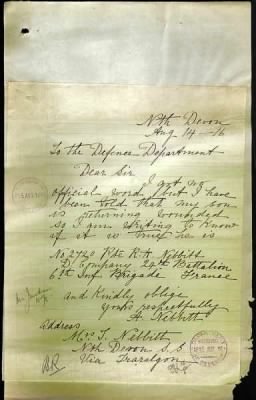 Nth Devon
Aug 14-16
To the Defence Department
Dear Sir
I got no
official word but I have
been told that my son
is returning wounded
so I am writing to know
if it is true he is
No 2720 Pte R. A Nebbitt
D Company 22nd Battalion
6th Inf Brigade France
and Kindly oblige
yours respectfully
A. Nebbitt
Address
Mrs T. Nebbitt
Nth Devon S.S.
Via Traralgon